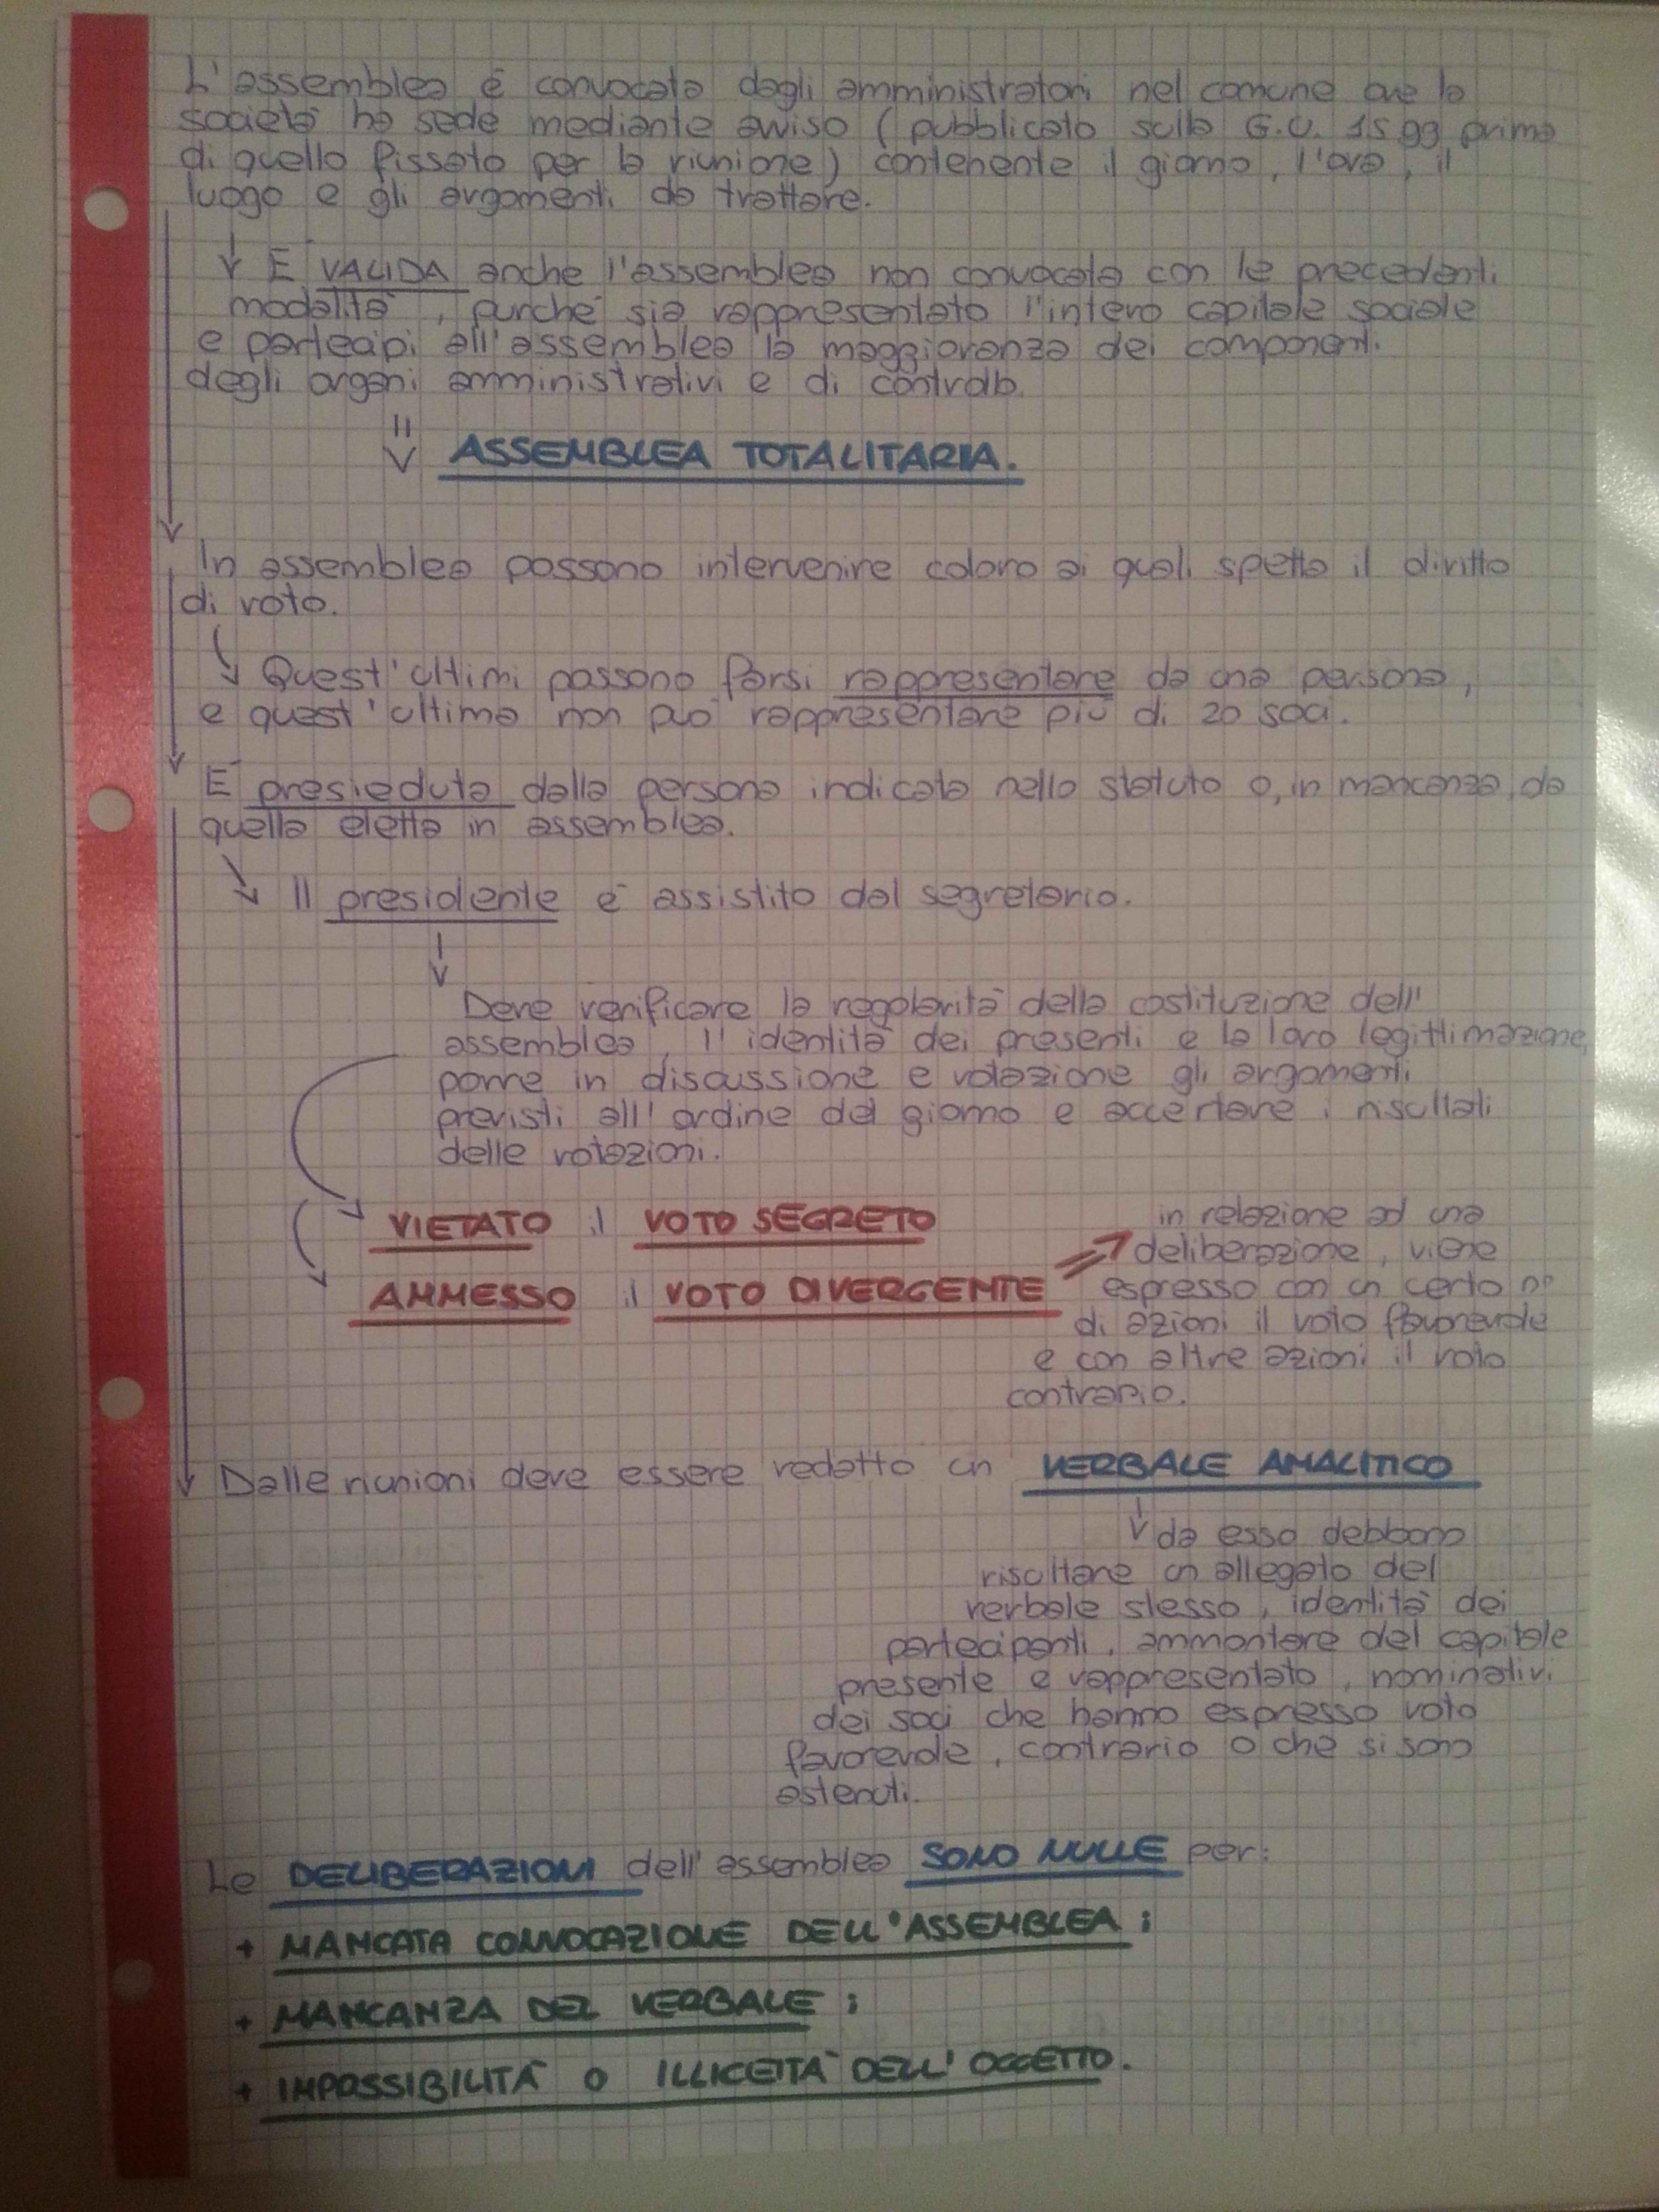 L'assemblea è convocata dagli amministratori nel comune ove la
società ha sede mediante avviso (pubblicato sulla G.U. 15 gg prima
di quello fissato per la riunione) contenente il giorno, l'ora, il
luogo e gli argomenti da trattare.
È VALIDA anche l'assemblea non convocata con le precedenti
modalità, purché sia rappresentato l'intero capitale sociale
e partecipi all'assemblea la maggioranza dei componenti
degli organi amministrativi e di controllo.
ASSEMBLEA TOTALITARIA.
In assemblea possono intervenire coloro ai quali spetta il diritto
di voto.
Quest'ultimi possono farsi rappresentare da una persona,
e quest'ultima non può rappresentare più di 20 soci.
È presieduta dalla persona indicata nello statuto o, in mancanza, da
quella eletta in assemblea.
Il presidente è assistito dal segretario.
Deve verificare la regolarità della costituzione dell'
assemblea, l'identità dei presenti e la loro legittimazione,
porre in discussione e votazione gli argomenti
previsti all'ordine del giorno e accertare i risultati
delle votazioni.
VIETATO il VOTO SEGRETO
AMMESSO il VOTO DIVERGENTE
in relazione ad una
deliberazione, viene
espresso con un certo n°
di azioni il voto favorevole
e con altre azioni il voto
contrario.
Dalle riunioni deve essere redatto un VERBALE ANALITICO
da esso debbono
risultare un allegato del
verbale stesso, identità dei
partecipanti, ammontare del capitale
presente e rappresentato, nominativi
dei soci che hanno espresso voto
favorevole, contrario o che si sono
astenuti.
Le DELIBERAZIONI dell'assemblea SONO NULLE per:
+ MANCATA CONVOCAZIONE DELL'ASSEMBLEA;
+ MANCANZA DEL VERBALE;
+ IMPOSSIBILITÀ O ILLICEITÀ DELL'OGGETTO.